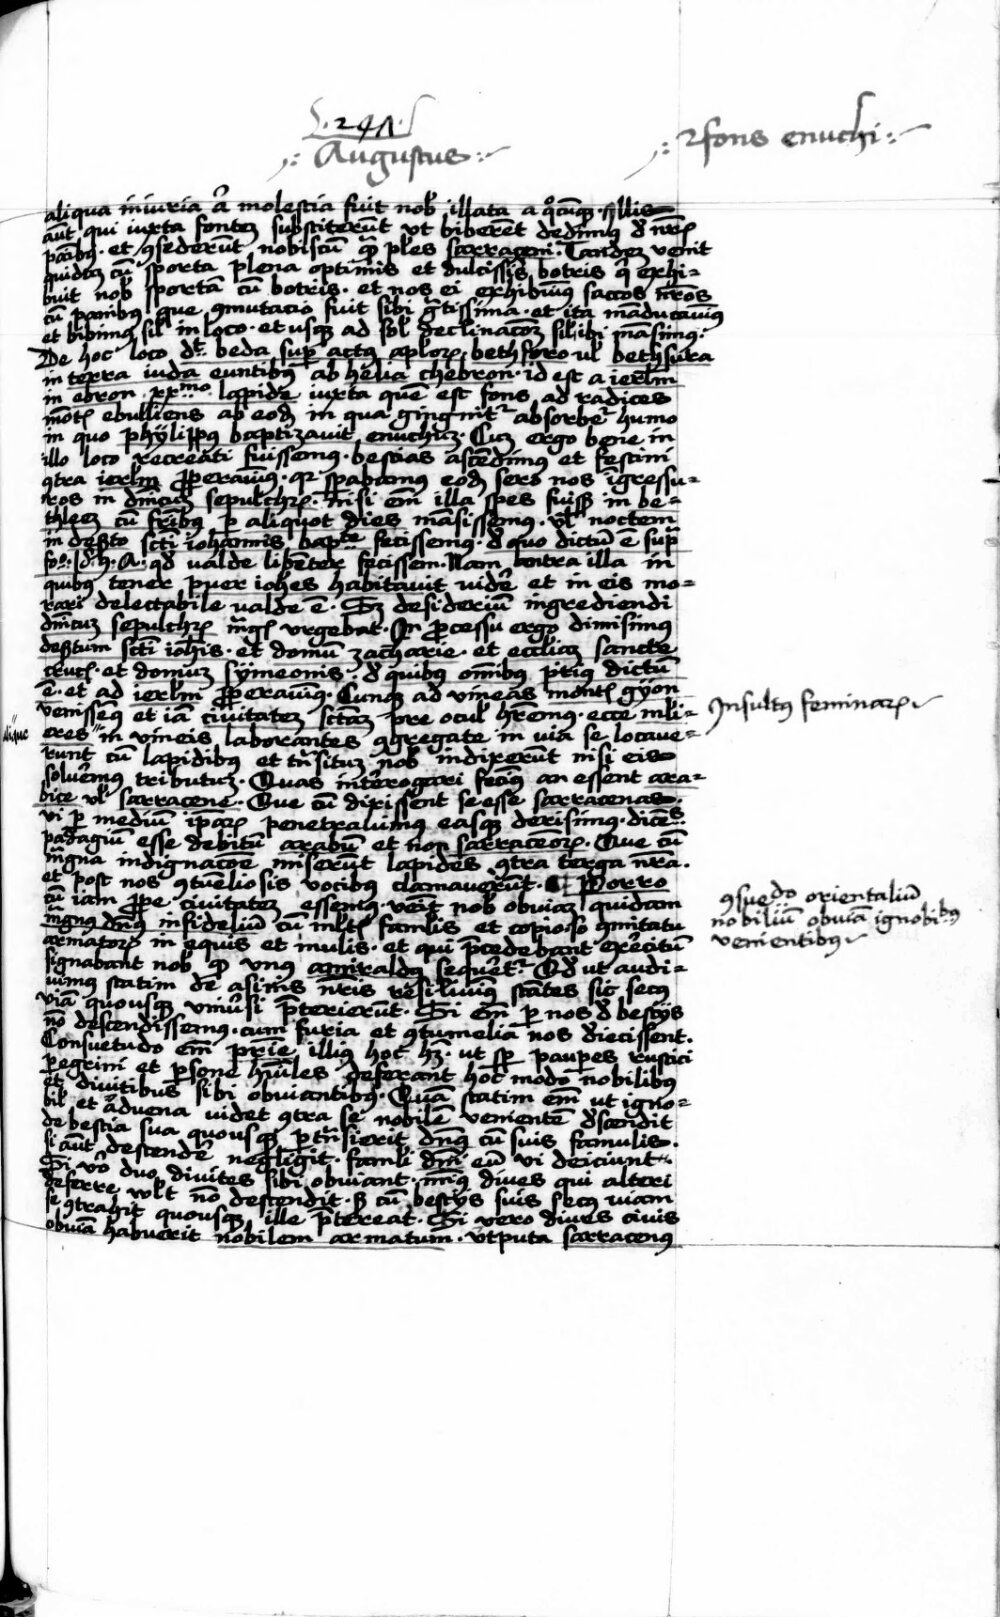 .291.
Augustus
fons enuchi
aliqua iniuria aut molestia fuit nob illata a quocumque. Illis
aut qui iuxta fontem substiterūt ut biberēt dedimus de nris
panibus. et consederūt nobiscū plures sarraceni. Tandem venit
quidam cū sporta plena optimis et dulcissimis botris quam exhi-
buit nob sportā cū botris. et nos ei exhibuimus saccos nros
cū panibus que commutacio fuit sibi gratissima. et ita māducauimus
et bibimus simul in loco. et usque ad solis declinacōem sibi ibi māsimus.
De hoc loco dicit beda super actus aplorum. bethsoro vel bethsura
in terra iuda euntibus ab helia chebron. id est a ierlm
in ebron. xxmo lapide iuxta quē est fons ad radices
mōtis ebulliens ab eodem in qua gingnitur absorbetur humo
in quo phylippus baptizauit enuchum. Cum ergo bene in
illo loco recreati fuissemus. bestias ascēdimus et festini
contra ierlm properauimus. quia sperabamus eodem sero nos īgressu-
ros in dnicum sepulchrum. nisi enim illa spes fuisset in be-
thleem cū fratribus per aliquot dies māsissemus. vel noctem
in deserto scti iohannis baptiste fecissemus. de quo dictū ē supra
fo. quod valde libēter fecissem. Nam contra illa in
quibus tener puer iohes habitauit videre et in eis mo-
rari delectabile valde ē. Sed desideriū ingrediendi
dnicum sepulchrum magis urgebat. In processu ergo dimisimus
desertum scti iohis. et domū zacharie. et eccliam sancte
crucis. et domum symeonis. de quibus omnibus prius dictū
ē. et ad ierlm properauimus. Cumque ad vineas montis gyon
venissēus et iā ciuitatem sctam pre oculis hrēmus. ecce muli-
eres in vineis laborantes congregate in via se locaue-
aliquae
runt cū lapidibus et trāsitum nob indixerūt nisi eis
soluerēmus tributum. Quas interrogari fecimus an essent ara-
bice vel sarracene. Que cū dixissent se esse sarracenas.
vi per mediū ipsarum penetrauimus easque derisimus. dicētes
padagiū esse debitū arabū et non sarracēorum. Que cū
magna indignacōe miserūt lapides contra terga nra.
et post nos contumeliosis vocibus clamauerūt. Porro
cū iam prope ciuitatem essemus. venit nob obuiam quidam
magnus dns infideliū cū multis famulis et copioso comitatu
armatorum in equis et mulis. et qui precedebant exercitum
signabant nob quod unus amiraldus sequeretur. Quod ut audi-
uimus statim de asinis nris resiliuimus stātes sic secus
viā quousque vniuersi preterierūt. Si enim per nos de bestijs
nō descendissemus. cum furia et contumelia nos deiecissent.
Consuetudo enim patrie illius hoc habet. ut semper pauperes rustici
peregrini et persone humiles deferant hoc modo nobilibus
et diuitibus sibi obuiantibus. Quam statim enim ut igno-
bilis et aduena videt contra se nobilē venientē descendit
de bestia sua quousque pertrāsierit dns cū suis famulis.
si aut descendere negligit. famuli dni eū vi deiciunt.
Si vero duo diuites sibi obuiant. minus diues qui alteri
deferre vult nō descendit. sed cū bestijs suis secus uiam
se contrahit quousque ille pretereat. Si vero diues ciuis
obuiā habuerit nobilem armatum. utputa sarracenus
Insultus feminarum
consuetudo orientaliū
nobiliū obuiā ignobilibus
venientibus